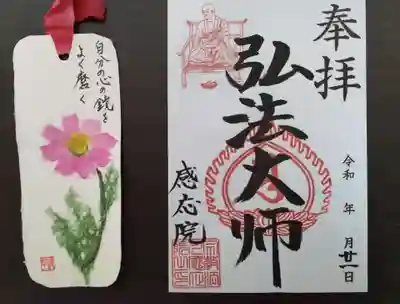 自分の心の鏡を
よく磨く
奉拝
弘法大師
令和 年 月廿一日
感応院